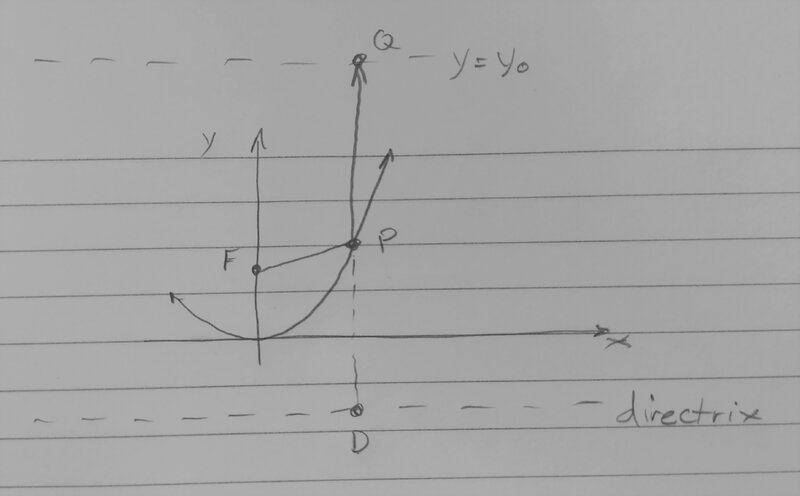 Q
y = y₀
y
F
P
x
directrix
D